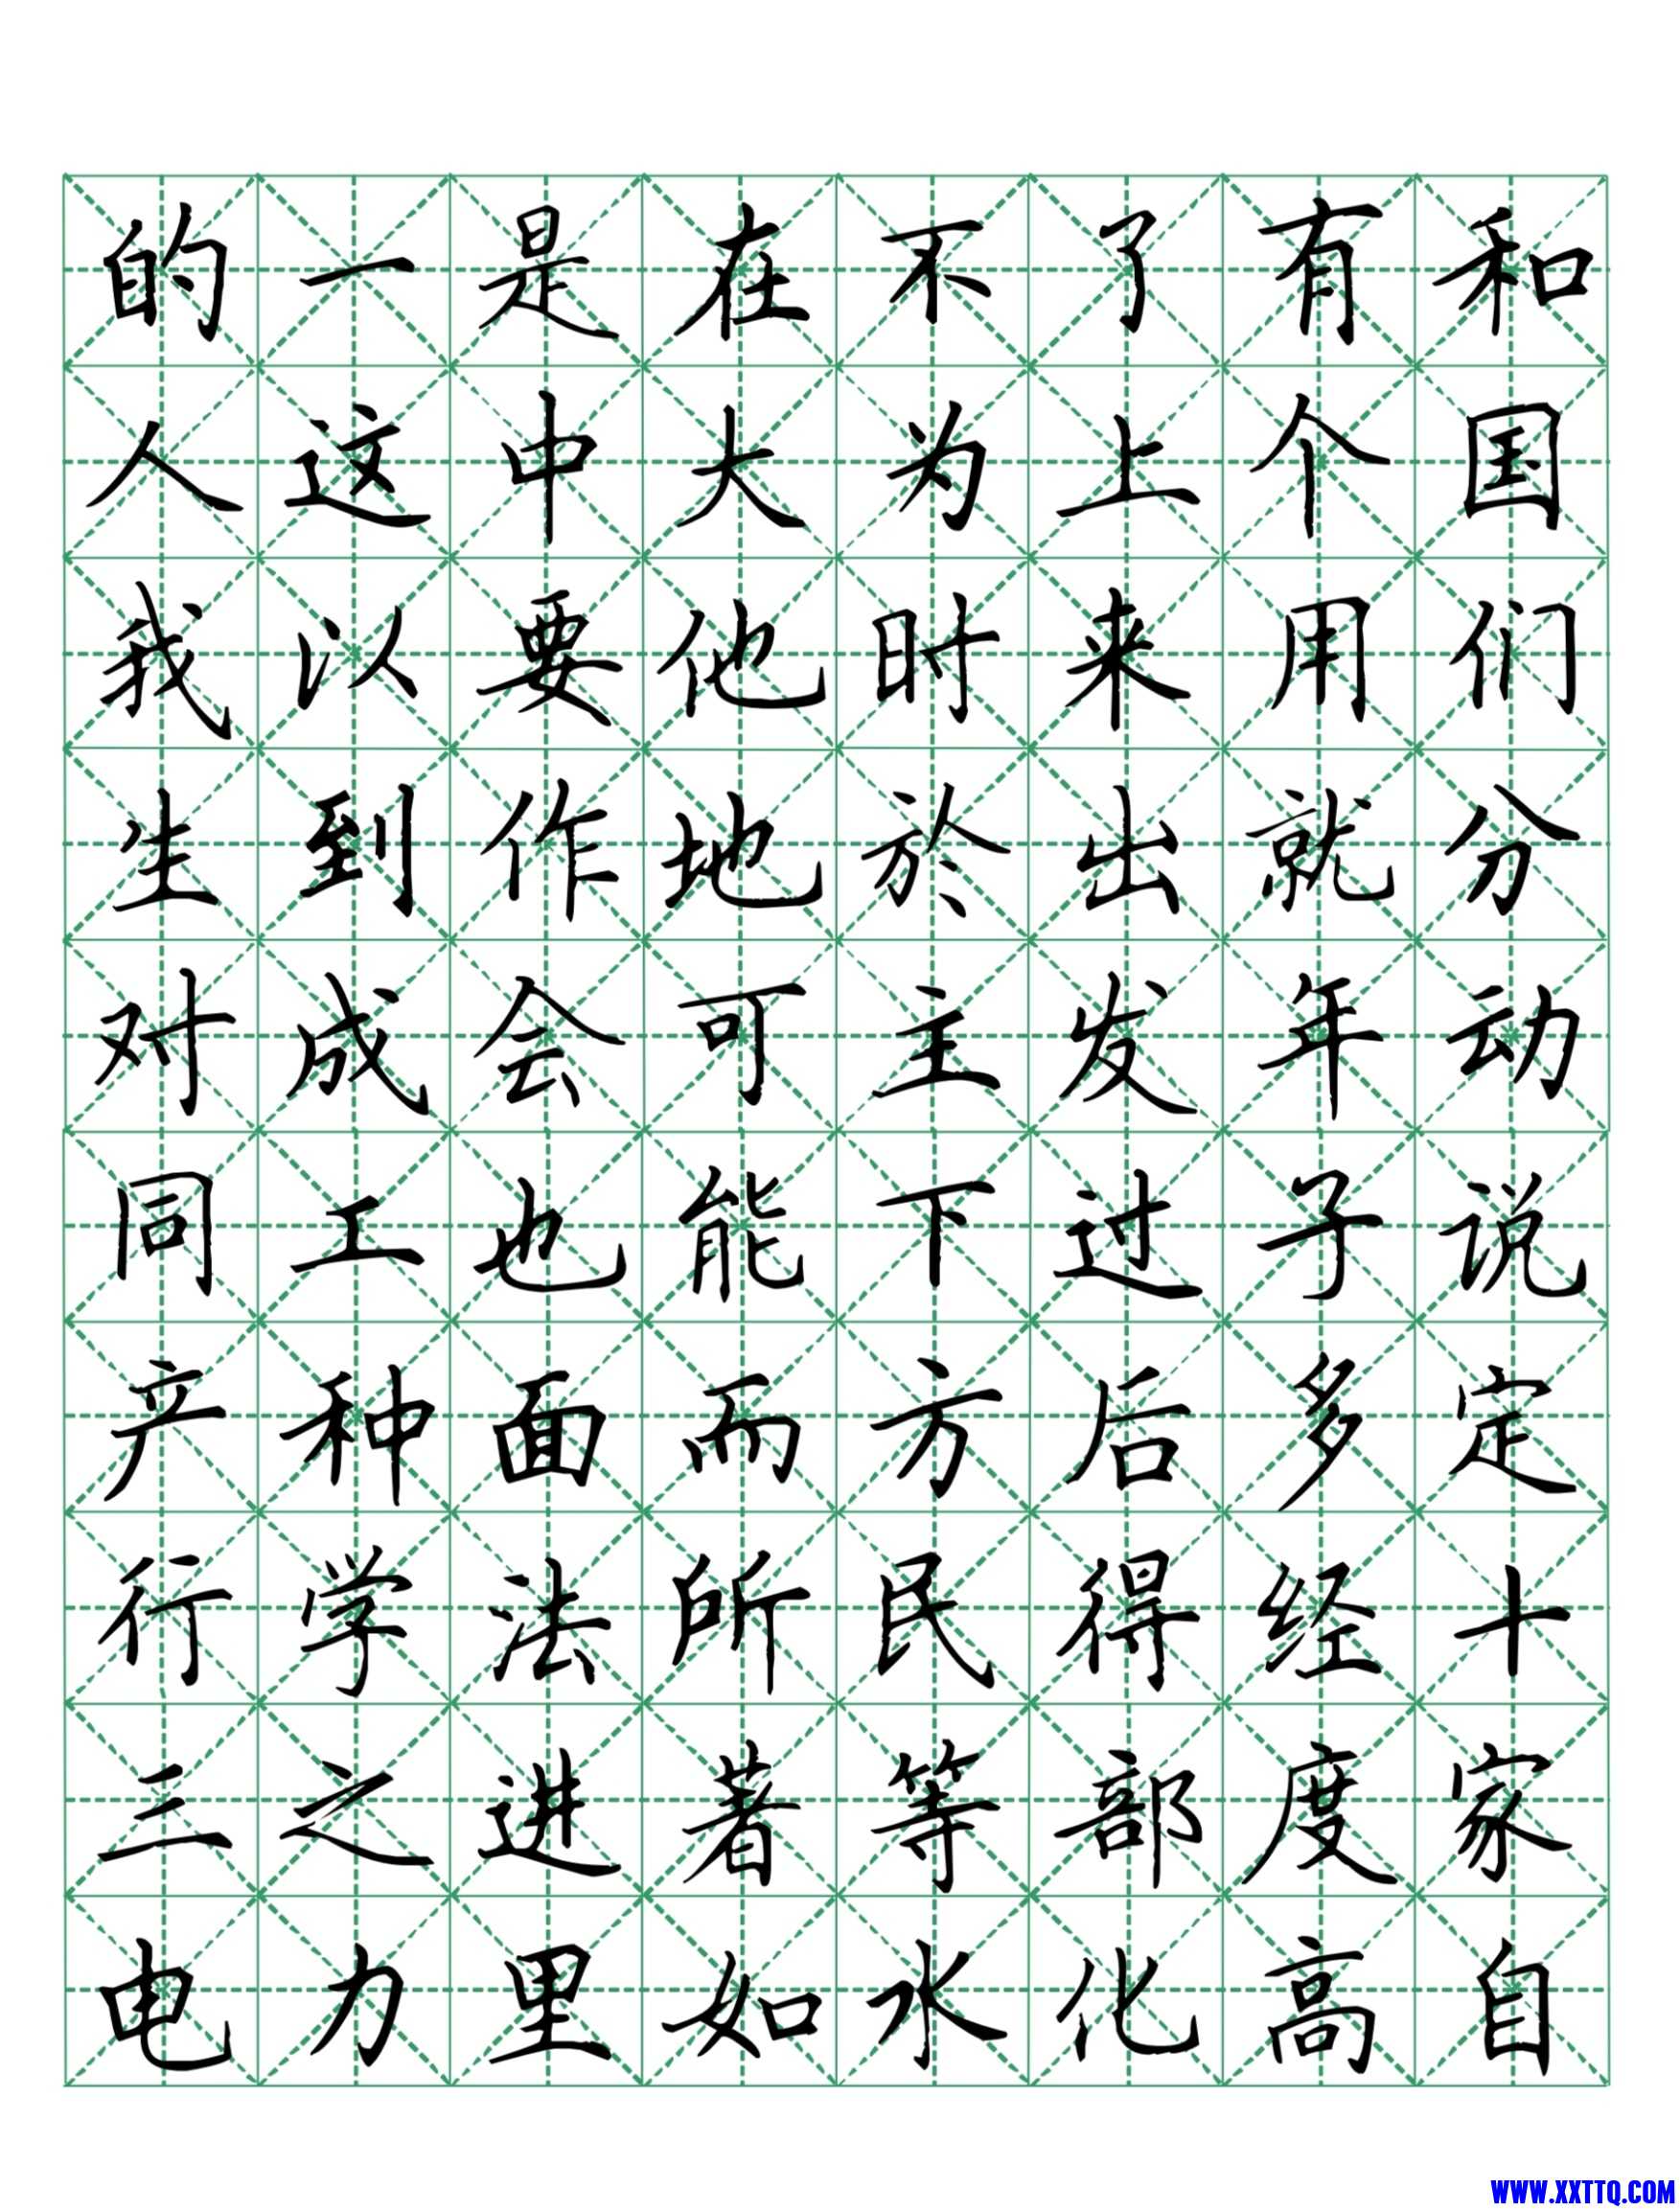 的一是在不了有和
人这中大为上个国
我以要他时来用们
生到作地於出就分
对成会可主发年动
同工也能下过子说
产种面而方后多定
行学法所民得经十
三之进著等部度家
电力里如水化高自
WWW.XXTTQ.COM